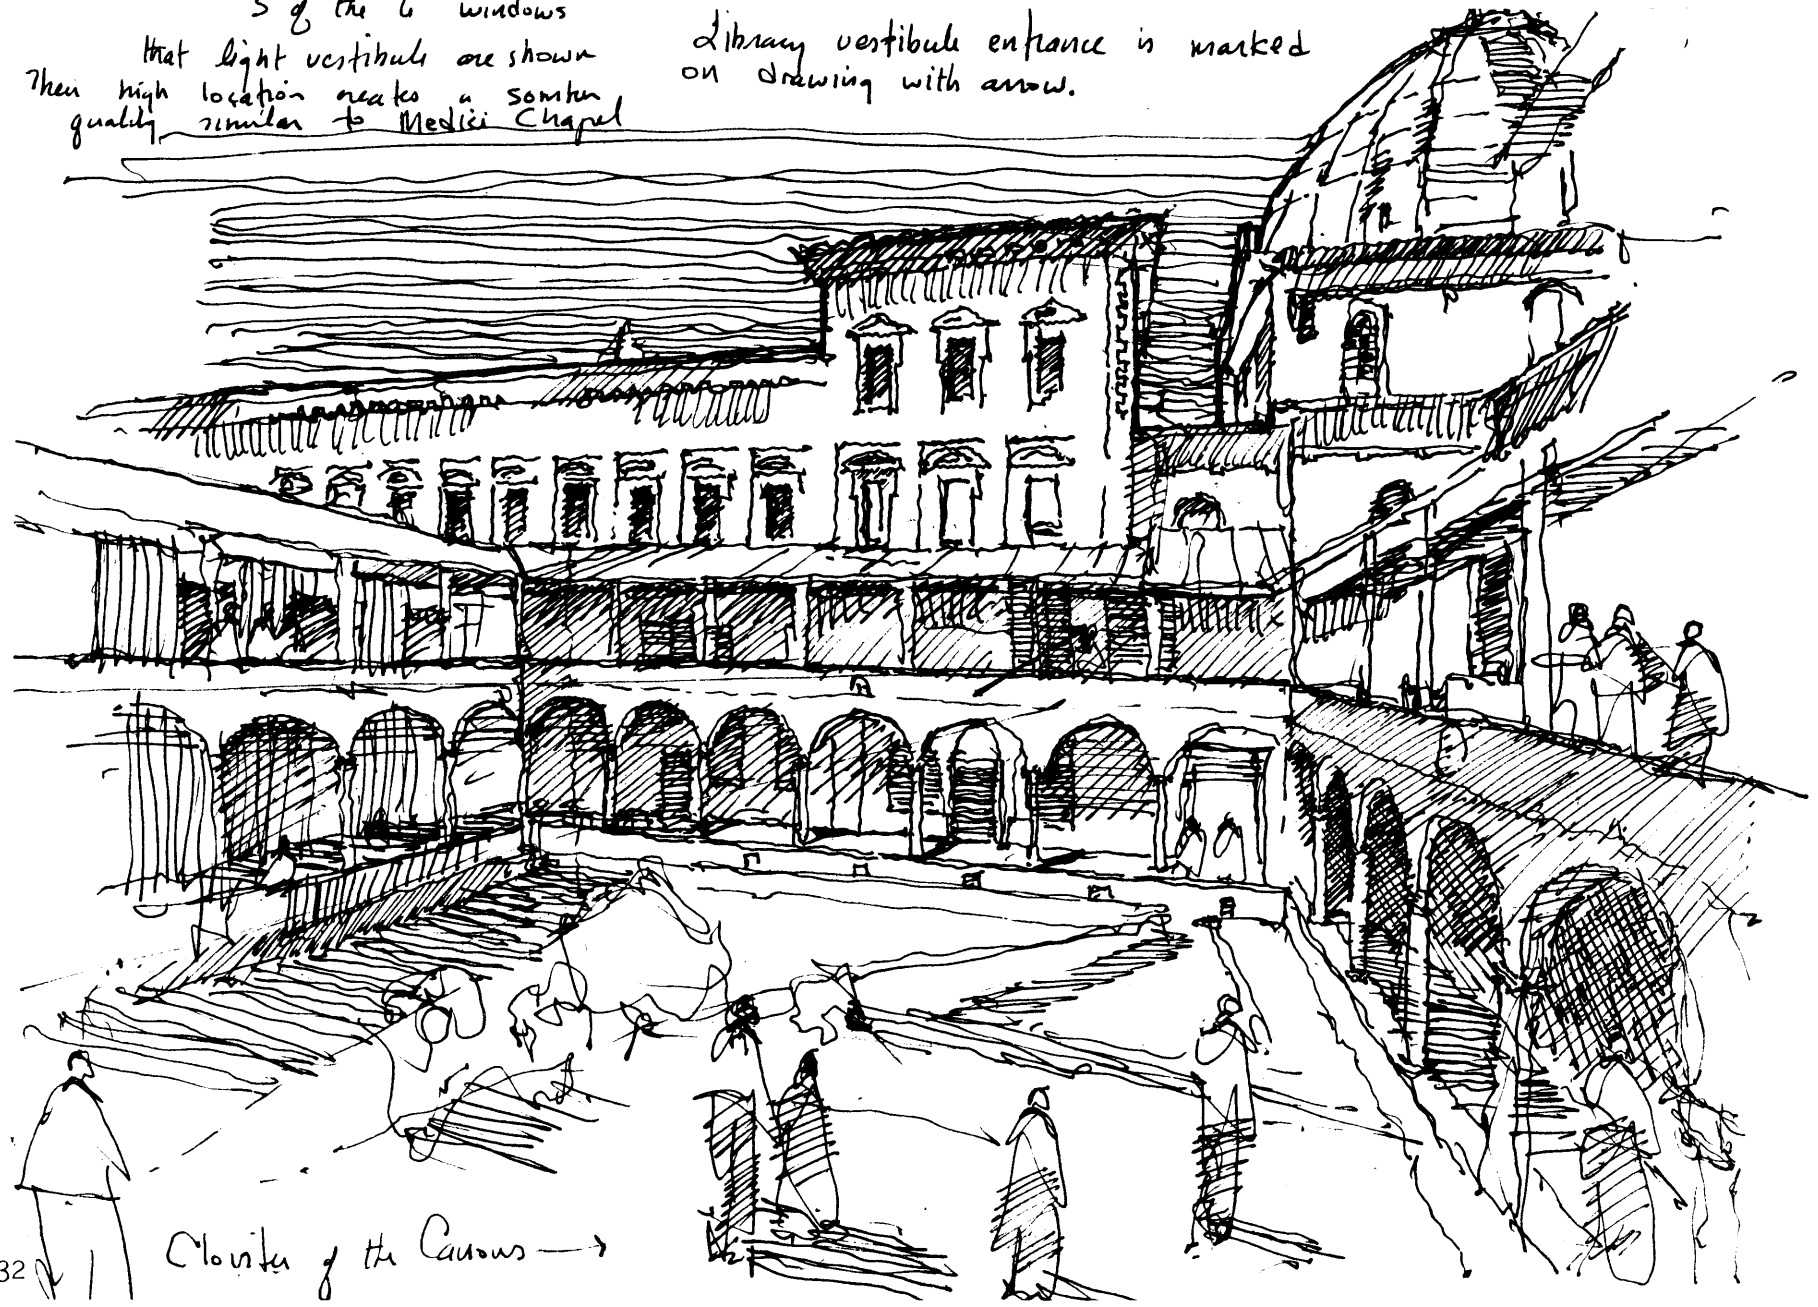 3 of the 6 windows
that light vestibule are shown
Their high location creates a somber
quality similar to Medici Chapel
Library vestibule entrance is marked
on drawing with arrow.
Cloister of the Canons
32